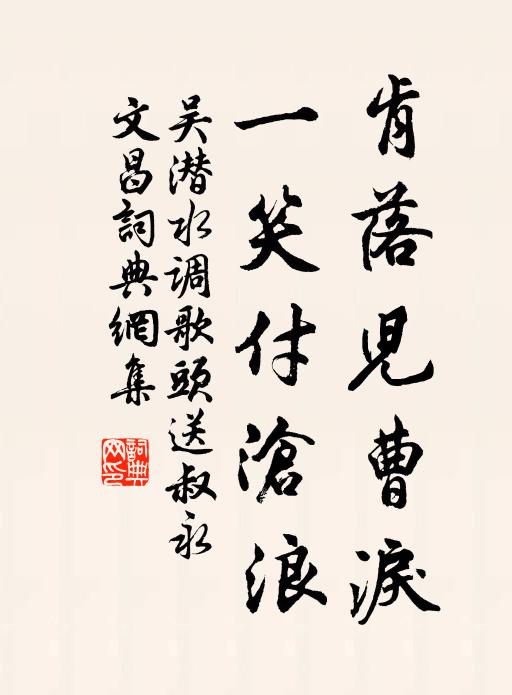 肯落兒曹淚
一笑付滄浪
吴潜水调歌頭送叔永
文昌詞典網集
詞典網印